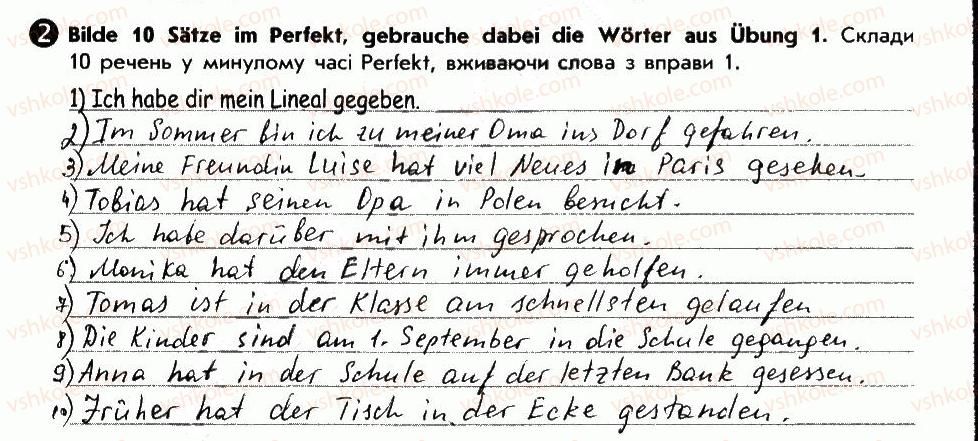 2 Bilde 10 Sätze im Perfekt, gebrauche dabei die Wörter aus Übung 1. Склади
10 речень у минулому часі Perfekt, вживаючи слова з вправи 1.
1) Ich habe dir mein Lineal gegeben.
2) Im Sommer bin ich zu meiner Oma ins Dorf gefahren.
3) Meine Freundin Luise hat viel Neues in Paris gesehen.
4) Tobias hat seinen Opa in Polen besucht.
5) Ich habe darüber mit ihm gesprochen.
6) Monika hat den Eltern immer geholfen.
7) Tomas ist in der Klasse am schnellsten gelaufen
8) Die Kinder sind am 1. September in die Schule gegangen.
9) Anna hat in der Schule auf der letzten Bank gesessen.
10) Früher hat der Tisch in der Ecke gestanden.
vshkole.com